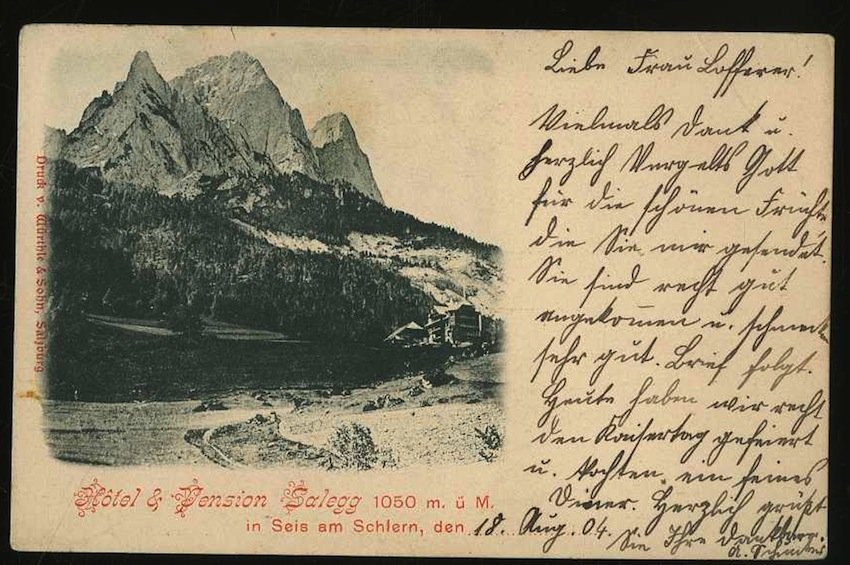 Druck v. Würthle & Sohn, Salzburg
Hôtel & Pension Salegg 1050 m. ü M.
in Seis am Schlern, den 18. Aug. 04.
Liebe Frau Lofferer!
Vielmals Dank u.
herzlich Vergelts Gott
für die schönen Früchte
die Sie mir gesendet.
Sie sind recht gut
angekommen u. schmecken
sehr gut. Brief folgt.
Heute haben wir recht
den Kaisertag gefeiert
u. hatten ein feines
Diner. Herzlich grüßt
Sie Ihre dankbare